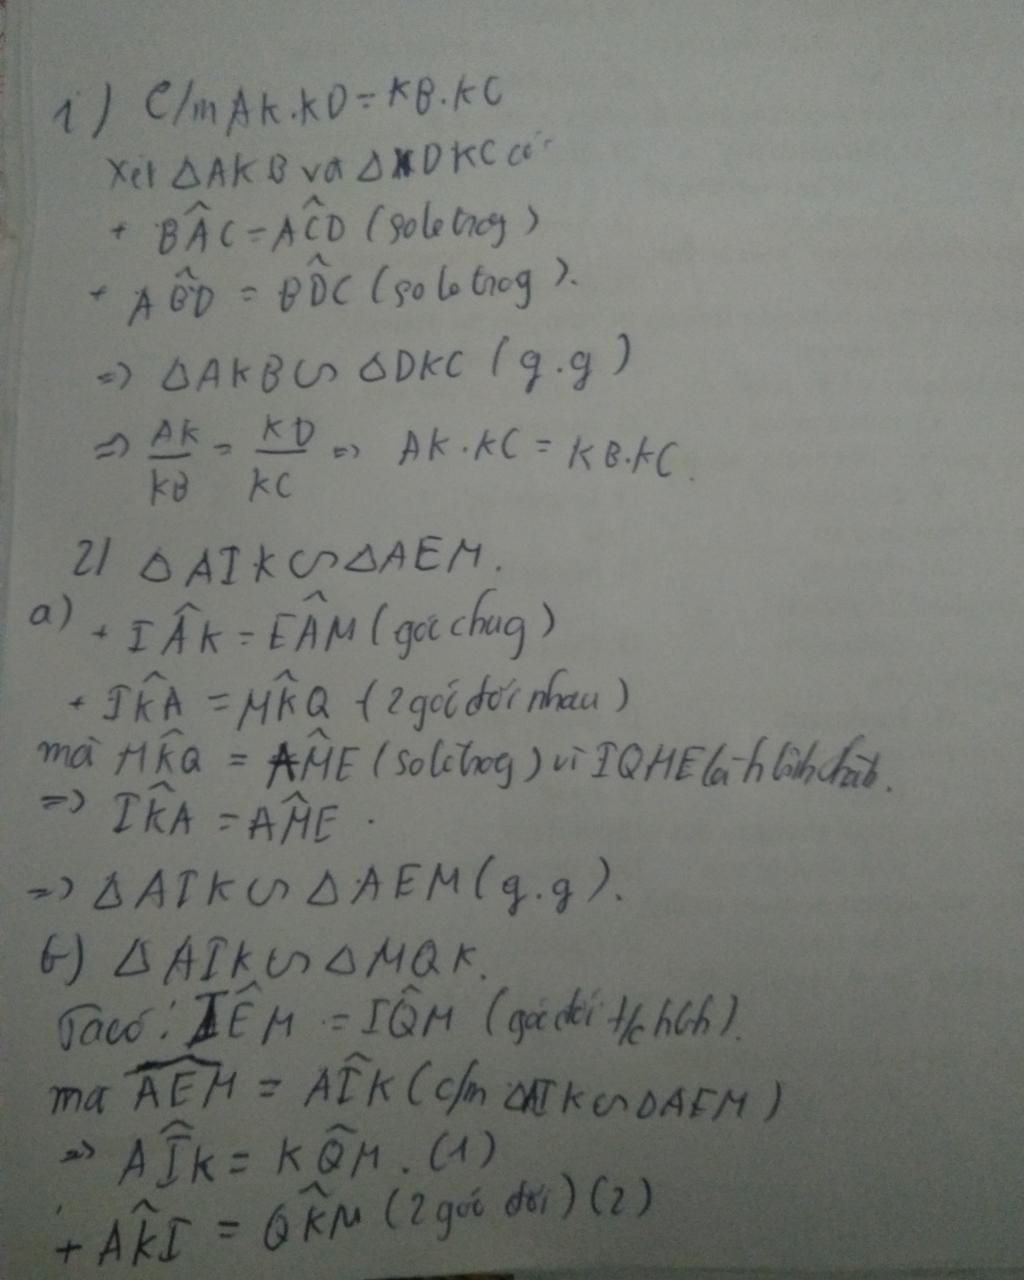 1) C/m AK.KD = KB.KC
Xét ΔAKB và ΔDKC có
+ BÂC = AĈD (so le trog)
+ AB̂D = BD̂C (so le trog).
=> ΔAKB ∽ ΔDKC (g.g)
=> AK/KB = KD/KC => AK.KC = KB.KC.
2) ΔAIK ∽ ΔAEM.
a) + IÂK = EÂM (góc chug)
+ IK̂A = MK̂Q (2 góc đối nhau)
mà MK̂Q = AM̂E (so le trog) vì IQME là h bình hành.
=> IK̂A = AM̂E.
=> ΔAIK ∽ ΔAEM (g.g).
b) ΔAIK ∽ ΔMQK.
Ta có: IÊM = IQ̂M (góc đối t/c hbh).
mà AÊM = AÎK (c/m ΔAIK ∽ ΔAEM)
=> AÎK = KQ̂M. (1)
+ AK̂I = QK̂M (2 góc đối) (2)